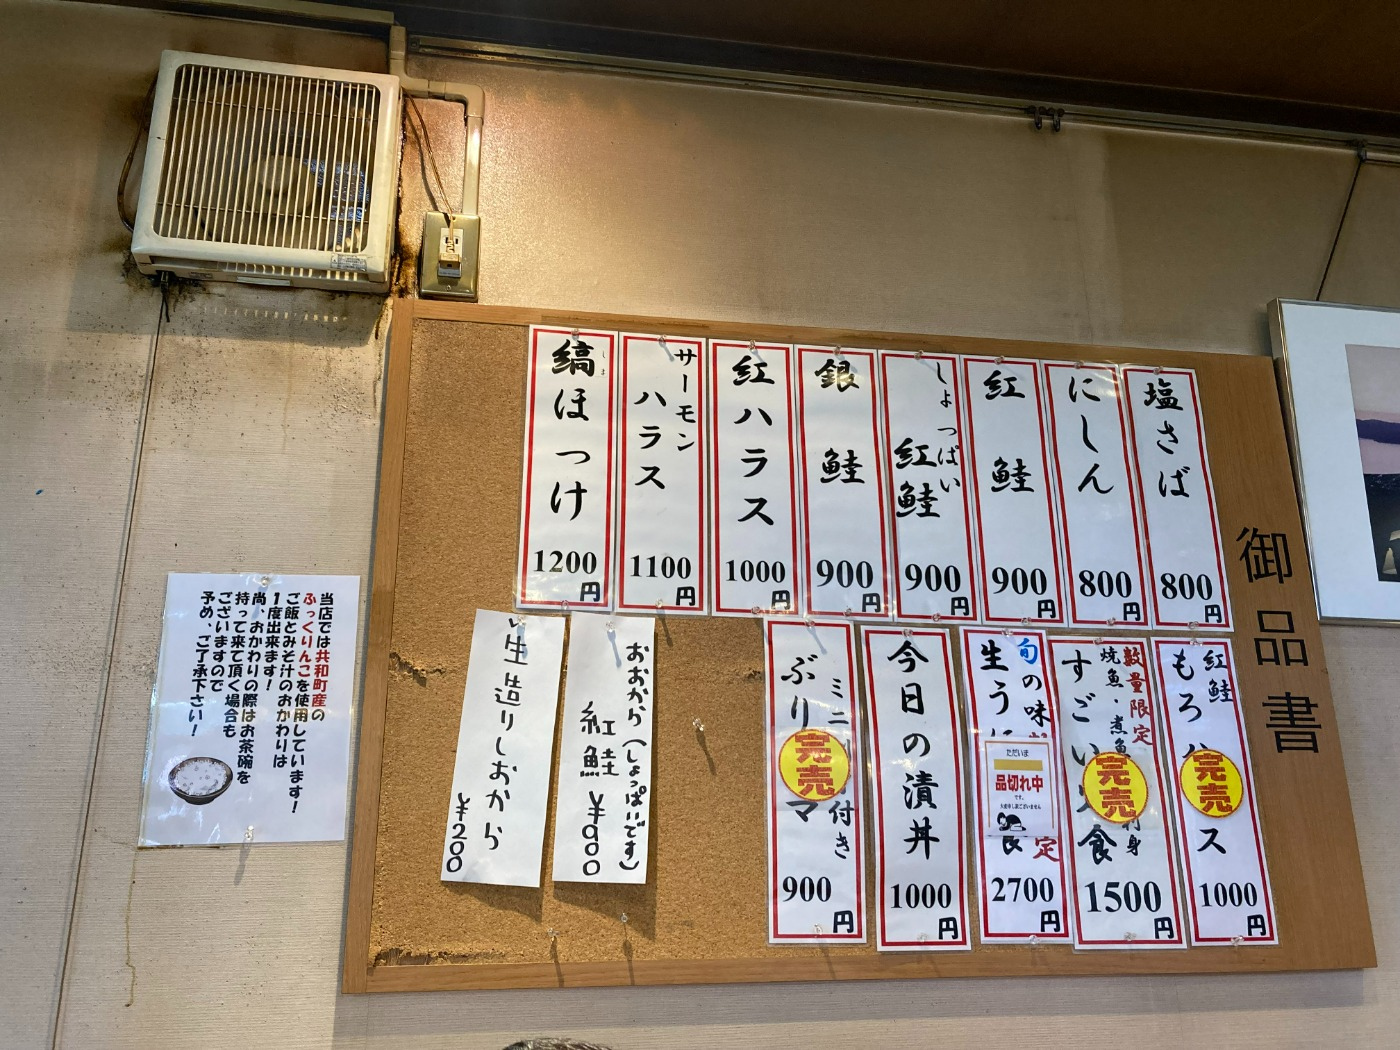 御品書
塩さば
800円
にしん
800円
紅鮭
900円
しょっぱい
紅鮭
900円
銀鮭
900円
紅ハラス
1000円
サーモン
ハラス
1100円
しま
縞ほっけ
1200円
紅鮭
もろハス
完売
1000円
数量限定
焼魚・煮魚
刺身
すごい
食
完売
1500円
旬の味
定
生う
ただいま
品切れ中
です。
2700円
今日の漬丼
1000円
ミニ
付き
ぶり
マ
完売
900円
おおから(しょっぱいです)
紅鮭 ¥900
生造りしおから
¥200
当店では共和町産の
ふっくりんこを使用しています!
ご飯とみそ汁のおかわりは
1度出来ます!
尚、おかわりの際はお茶碗を
持って来て頂く場合も
ございますので
予め、ご了承下さい!